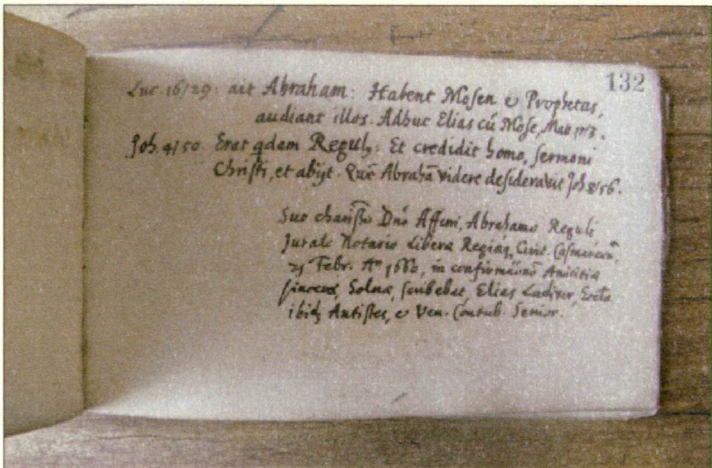 132
Luc. 16/29: ait Abraham: Habent Mosen & Prophetas,
audiant illos. Adhuc Elias cũ Mose, Mat 17/3.
Joh. 4/50. Erat qdam Regulꝰ: Et credidit homo, sermoni
Christi, et abijt. Quẽ Abrahã videre desideravit Joh 8/56.
Suo chariss̃o Dnõ Affini, Abrahamo Reguli
Jurato Notario Liberæ Regiæq, Civit.
Febr. Aº 1660, in Amicitiæ
sinceræ, Solnæ, scribebat, Elias Ladiver, Eccla
ibidẽ Antistes, & Ven. Contub. Senior.